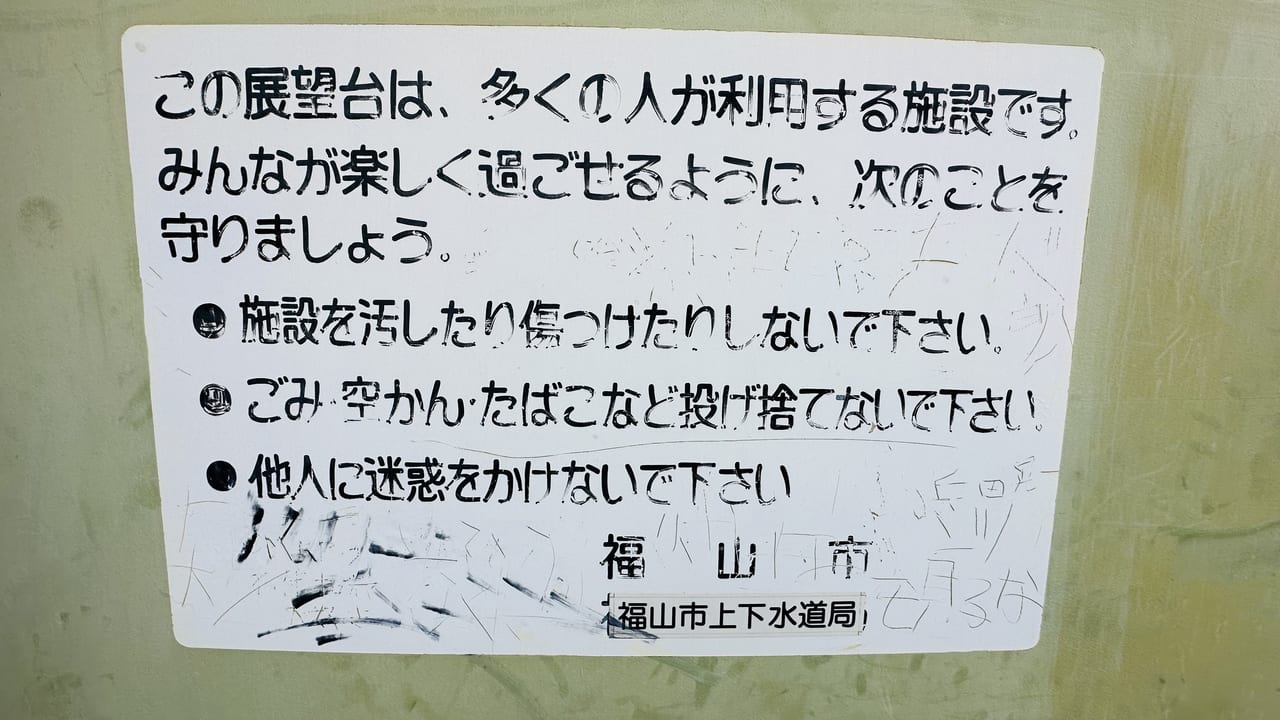 この展望台は、多くの人が利用する施設です。
みんなが楽しく過ごせるように、次のことを
守りましょう。
●施設を汚したり傷つけたりしないで下さい。
●ごみ・空かん・たばこなど投げ捨てないで下さい
●他人に迷惑をかけないで下さい
福山市
福山市上下水道局